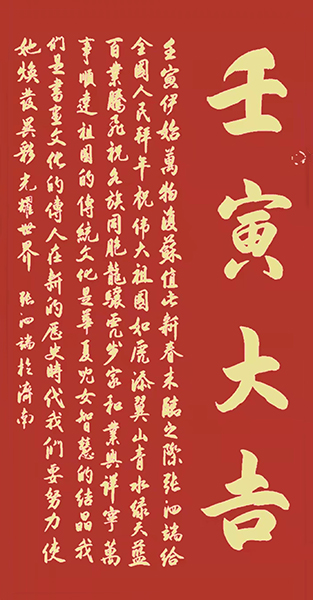 壬寅大吉
壬寅伊始萬物復蘇值此新春來臨之際張泗端給
全國人民拜年祝偉大祖國如虎添翼山青水綠天藍
百業騰飛祝各族同胞龍驤虎步家和業興詳寧萬
事順達祖國的傳統文化是華夏兒女智慧的結晶我
們是書畫文化的傳人在新的歷史時代我們要努力使
她煥發異彩光耀世界 張泗端於濟南